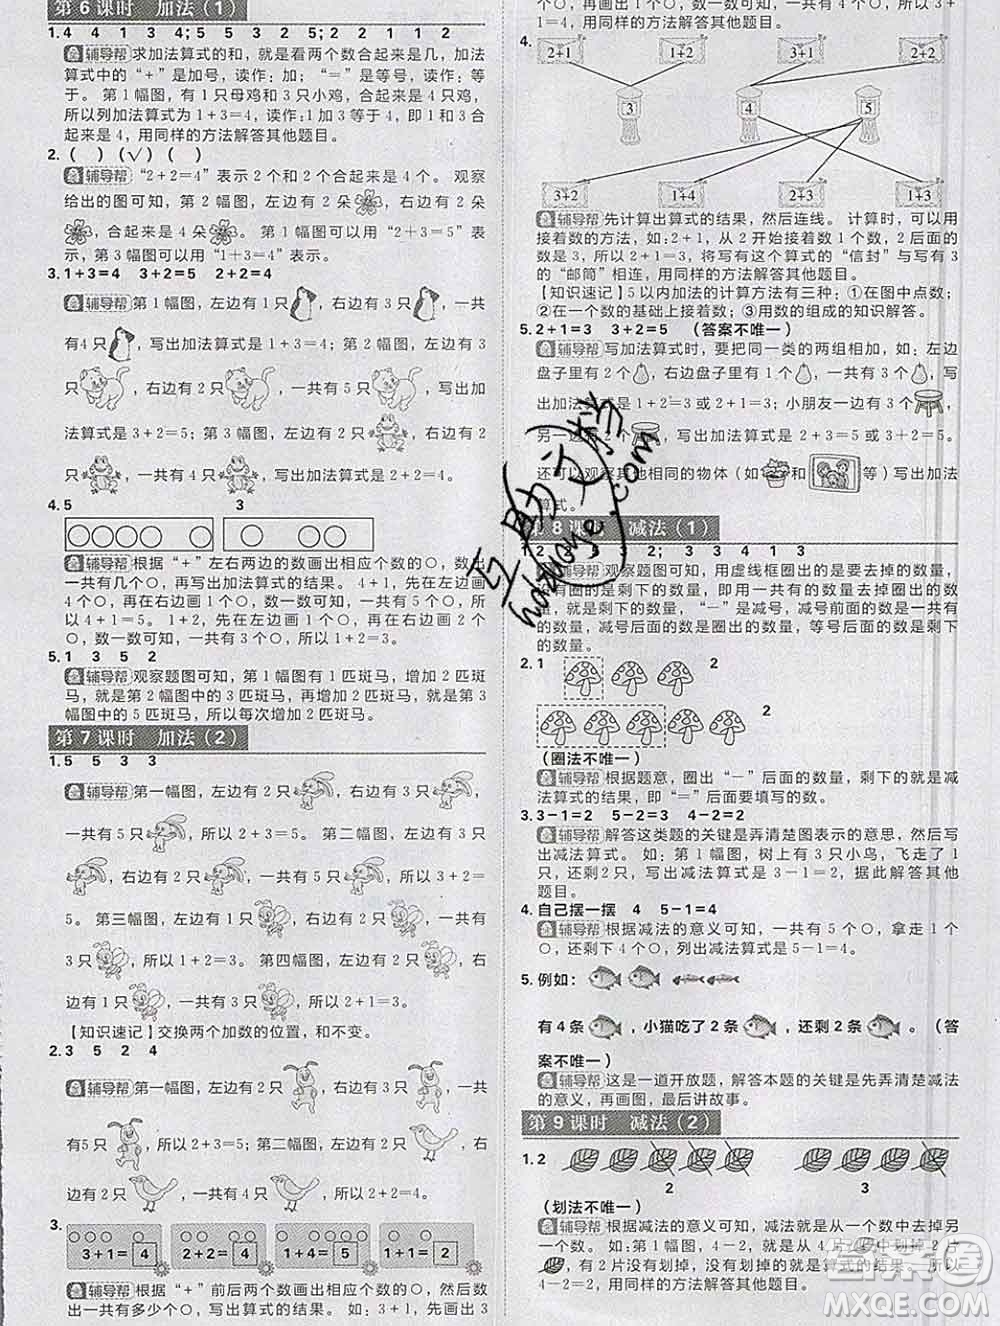 第6课时 加法(1)
1.4 4 1 3 4;5 5 3 2 5;2 2 1 1 2
辅导帮 求加法算式的和，就是看两个数合起来是几，加法
算式中的“+”是加号，读作：加；“=”是等号，读作：等
于。第1幅图，有1只母鸡和3只小鸡，合起来是4只鸡，
所以列加法算式为1+3=4，读作：1加3等于4，即1和3合
起来是4，用同样的方法解答其他题目。
2.( ) (√) ( )
辅导帮 “2+2=4”表示2个和2个合起来是4个。观察
给出的图可知，第2幅图，左边有2朵，右边有2朵
，合起来是4朵。第1幅图可以用“2+3=5”表
示，第3幅图可以用“1+3=4”表示。
3.1+3=4 3+2=5 2+2=4
辅导帮 第1幅图，左边有1只，右边有3只，一共
有4只，写出加法算式是1+3=4；第2幅图，左边有3
只，右边有2只，一共有5只，写出加
法算式是3+2=5；第3幅图，左边有2只，右边有2
只，一共有4只，写出加法算式是2+2=4。
4.5 3
辅导帮 根据“+”左右两边的数画出相应个数的○，数出一
共有几个○，再写出加法算式的结果。4+1，先在左边画
4个○，再在右边画1个○，数一数，一共有5个○，所
以4+1=5。1+2，先在左边画1个○，再在右边画2
个○，数一数，一共有3个○，所以1+2=3。
5.1 3 5 2
辅导帮 观察题图可知，第1幅图有1匹斑马，增加2匹斑
马，就是第2幅图中的3匹斑马，再增加2匹斑马，就是第3
幅图中的5匹斑马，所以每次增加2匹斑马。
第7课时 加法(2)
1.5 5 3 3
辅导帮 第一幅图，左边有2只，右边有3只，
一共有5只，所以2+3=5。第二幅图，左边有3只
，右边有2只，一共有5只，所以3+2=
5。第三幅图，左边有1只，右边有2只，一共有
3只，所以1+2=3。第四幅图，左边有2只，右
边有1只，一共有3只，所以2+1=3。
【知识速记】交换两个加数的位置，和不变。
2.3 5 2 4
辅导帮 第一幅图，左边有2只，右边有3只，一共
有5只，所以2+3=5。第二幅图，左边有2只，右
边有2只，一共有4只，所以2+2=4。
3.
3+1=4 2+2=4 1+4=5 1+1=2
辅导帮 根据“+”前后两个数画出相应个数的○，然后数出
一共有多少个○，写出算式的结果。如：3+1，先画出3
个○，再画出1个○，数一数一共有4个○，所以3+1=
4，用同样的方法解答其他题目。
4. 2+1 1+2 3+1 2+2
3 4 5
3+2 1+4 2+3 1+3
辅导帮 先计算出算式的结果，然后连线。计算时，可以用
接着数的方法，如：2+1，从2开始接着数1个数，2后面的
数是3，所以2+1=3，将写有这个算式的“信封”与写有3
的“邮筒”相连，用同样的方法解答其他题目。
【知识速记】5以内加法的计算方法有三种：①在图中点数；
②在一个数的基础上接着数；③用数的组成的知识解答。
5.2+1=3 3+2=5 (答案不唯一)
辅导帮 写加法算式时，要把同一类的两组相加，如：左边
盘子里有2个，右边盘子里有1个，一共有3个，写
出加法算式是1+2=3或2+1=3；小朋友一边有2个，
另一边有2个，写出加法算式是2+3=5或3+2=5。
还可以观察其他相同的物体(如和等)写出加法
算式。
第8课时 减法(1)
1.2 3 2;3 3 4 1 3
辅导帮 观察题图可知，用虚线框圈出的是要去掉的数量，
没有圈的是剩下的数量，即用一共有的数量去掉圈出的数
量，就是剩下的数量，“-”是减号，减号前面的数是一共有
的数量，减号后面的数是圈出的数量，等号后面的数是剩下
的数量。
2.1 2
2
(圈法不唯一)
辅导帮 根据题意，圈出“-”后面的数量，剩下的就是减
法算式的结果，即“=”后面要填写的数。
3.3-1=2 5-2=3 4-2=2
辅导帮 解答这类题的关键是弄清楚图表示的意思，然后写
出减法算式。如：第1幅图，树上有3只小鸟，飞走了1
只，还剩2只，写出减法算式是3-1=2，据此解答其他
题目。
4.自己摆一摆 4 5-1=4
辅导帮 根据减法的意义可知，一共有5个○，拿走1个
○，还剩下4个○，列出减法算式是5-1=4。
5.例如：
有4条，小猫吃了2条，还剩2条。(答
案不唯一)
辅导帮 这是一道开放题，解答本题的关键是先弄清楚减法
的意义，再画图，最后讲故事。
第9课时 减法(2)
1.2
2 3
(划法不唯一)
辅导帮 根据减法的意义可知，减法就是从一个数中去掉另
一个数。如：第1幅图，就是从4片中划掉2片
，有2片没有划掉，没有划掉的就是结果，即4-2=2，
用同样的方法解答其他题目。
互助文档
hdzuoye.com
答案圈
MXQE.COM